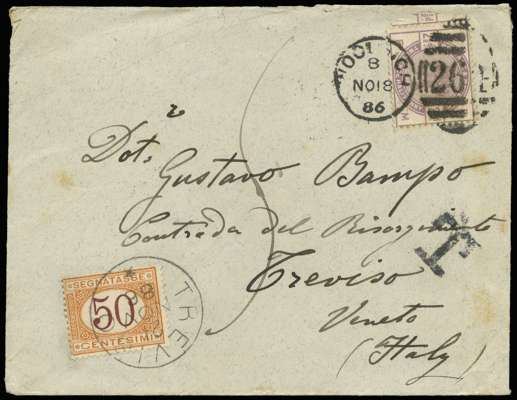 WOOLWICH
8
NO 18
86
126
Dot. Gustavo Bampo
Contrada del Risorgimento
Treviso
Veneto
(Italy)
T
SEGNATASSE
50
CENTESIMI
TREVI